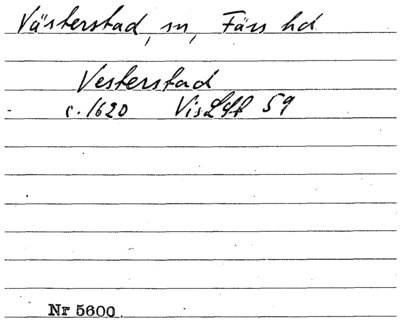 Västerstad, sn, Färs hd
Vesterstad
c. 1620 VisLft 59
Nr 5600